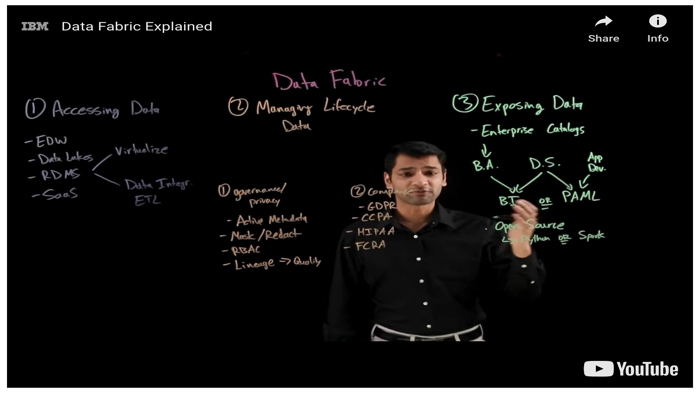 IBM
Data Fabric Explained
Share
Info
Data Fabric
① Accessing Data
- EDW
- Data Lakes
- RDMS
- SaaS
Virtualize
Data Integr.
ETL
② Managing Lifecycle
Data
① governance/
privacy
- Active Metadata
- Mask/Redact
- RBAC
- Lineage => Quality
②
- GDPR
- CCPA
- HIPAA
- FCRA
③ Exposing Data
- Enterprise Catalogs
B.A.
D.S.
App
Dev.
BI
OR
PAML
Open Source
Python OR Spark
YouTube